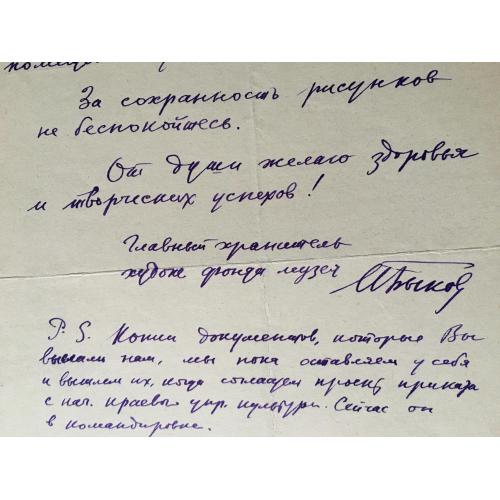 За сохранность рисунков
не беспокойтесь.
От души желаю здоровья
и творческих успехов!
Главный хранитель
худож фонда музея
Быков
P.S. Копии документов, которые Вы
выслали нам, мы пока оставляем у себя
и вышлем их, когда согласуем проект приказа
с нач. краевым упр. культуры. Сейчас он
в командировке.